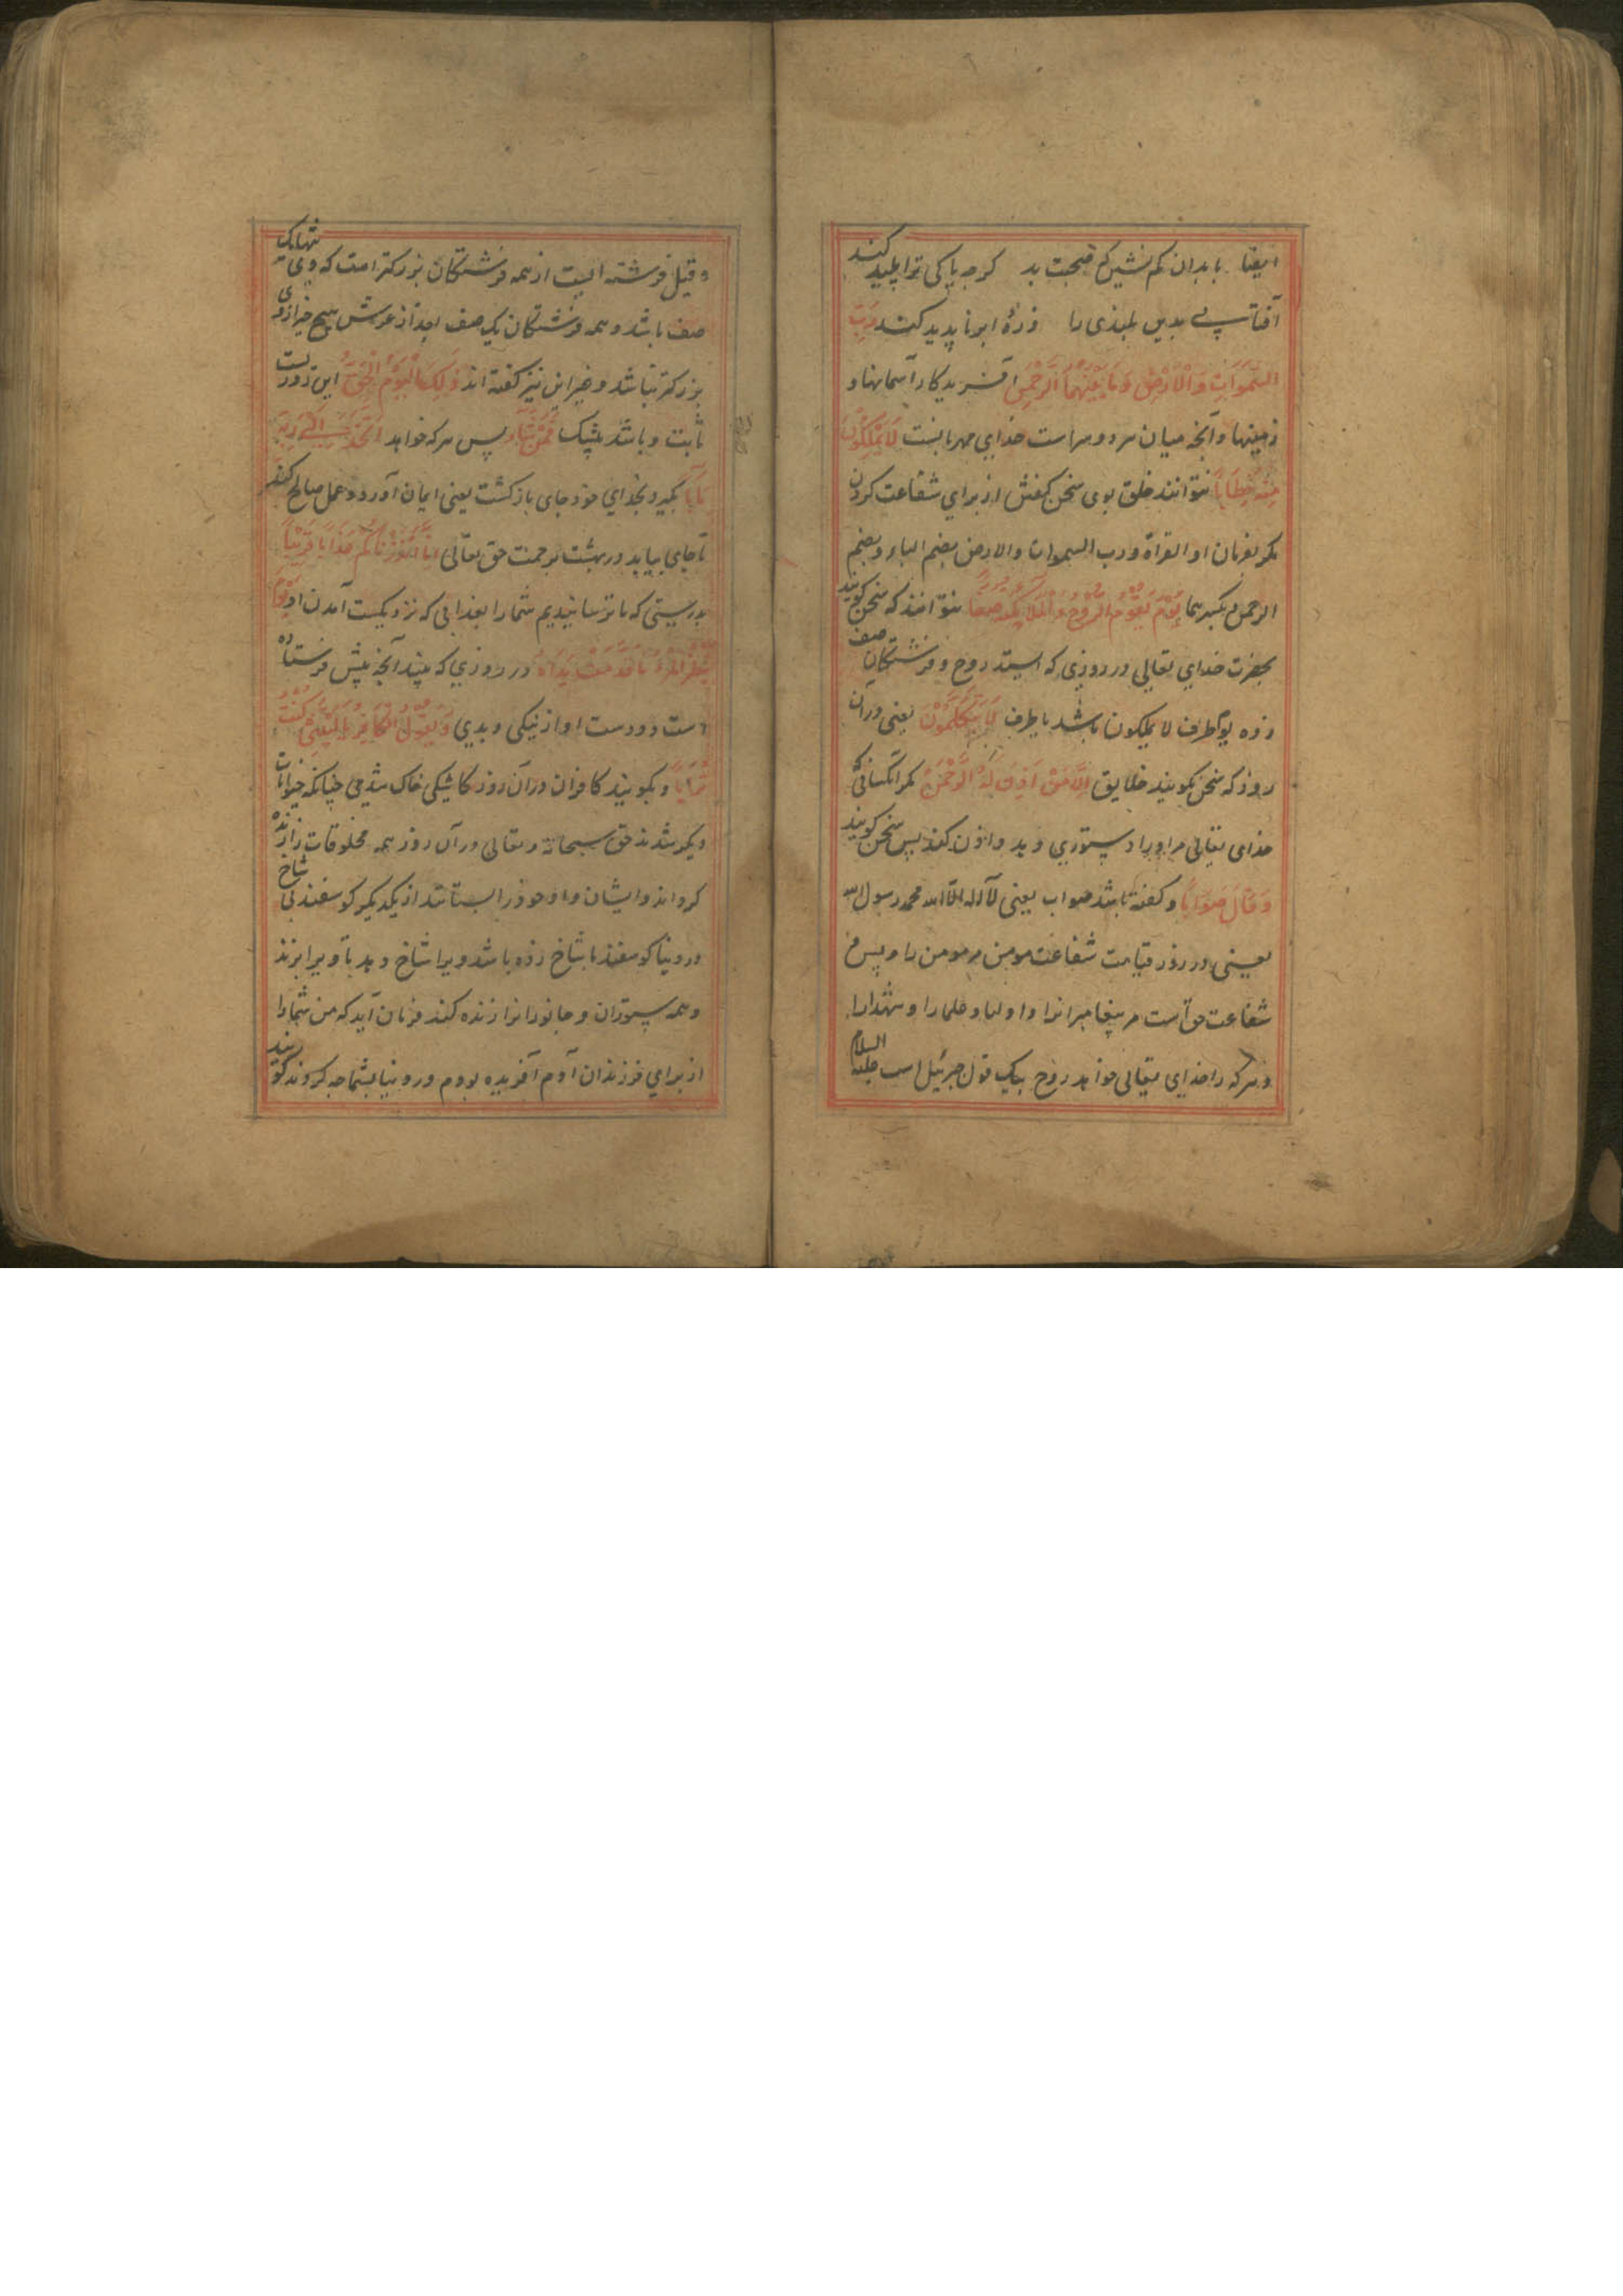 ایضا بابدان کم نشین که صحبت بد کرچه پاکی ترا پلید کند
آفتاب بدین بلندی را ذرهٔ ابر ناپدید کند رَبِّ
السَّمٰوَاتِ وَالْاَرْضِ وَمَا بَیْنَهُمَا الرَّحْمٰنِ آفریدکار آسمانها و
زمینها و آنچه میان هر دو سراست خدای مهربانست لَا یَمْلِکُوْنَ
مِنْهُ خِطَابًا نتوانند خلق بوی سخن کفتن از برای شفاعت کردن
مکر بفرمان او القراة ورب السموات والارض بضم الباء وبضم
الرحمن بکسرهما یَوْمَ یَقُوْمُ الرُّوْحُ وَالْمَلَائِکَةُ صَفًّا نتوانند که سخن کویند
بحضرت خدای تعالی در روزی که ایستد روح و فرشتکان صف
زده یوم ظرف لا یملکون باشد یا ظرف لَا یَتَکَلَّمُوْنَ یعنی دران
روز که سخن نکویند خلایق اِلَّا مَنْ اَذِنَ لَهُ الرَّحْمٰنُ مکر آنکسانی که
خدای تعالی مر او را دستوری دهد و اذن کند پس سخن کویند
وَقَالَ صَوَابًا و کفته باشد صواب یعنی لا اله الا الله محمد رسول الله
یعنی در روز قیامت شفاعت مومن مر مومن را و پس
شفاعت حق است مر پیغامبرانرا و اولیا و علما را و شهدا را
و هر که را خدای تعالی خواهد روح بیک قول جبرئیل است علیه السلام
و قیل فرشته ایست از همه فرشتکان بزرکتر است که وی تنها یک
صف باشد و همه فرشتکان یک صف بعد از عرش هیچ چیز از وی
بزرکتر نباشد و غیر این نیز کفته اند ذٰلِکَ الْیَوْمُ الْحَقُّ این روزیست
ثابت و باشد بیشک فَمَنْ شَآءَ پس هر که خواهد اتَّخَذَ اِلٰی رَبِّهٖ
مَاٰبًا بکیرد بخدای خود جای بازکشت یعنی ایمان آورد و عمل صالح کند
تا جای بیابد در بهشت برحمت حق تعالی اِنَّا اَنْذَرْنَاکُمْ عَذَابًا قَرِیْبًا
بدرستی که ما ترسانیدیم شما را بعذابی که نزدیکست آمدن او یَوْمَ
یَنْظُرُ الْمَرْءُ مَا قَدَّمَتْ یَدَاهُ در روزی که بیند آنچه پیش فرستاده
است دو دست او از نیکی و بدی وَیَقُوْلُ الْکَافِرُ یَا لَیْتَنِیْ کُنْتُ
تُرَابًا و بکویند کافران دران روز کاشکی خاک شدمی چنانکه حیوانات
دیکر شدند حق سبحانه و تعالی در آن روز همه مخلوقات را زنده
کرداند و ایشان داد خود را بستانند از یکدیکر کوسفند بی شاخ
در دنیا کوسفند با شاخ زده باشد ویرا شاخ دهد تا ویرا بزند
و همه ستوران و جانورانرا زنده کند فرمان آید که من شما را
از برای فرزندان آدم آفریده بودم در دنیا بشما چه کردند کویند